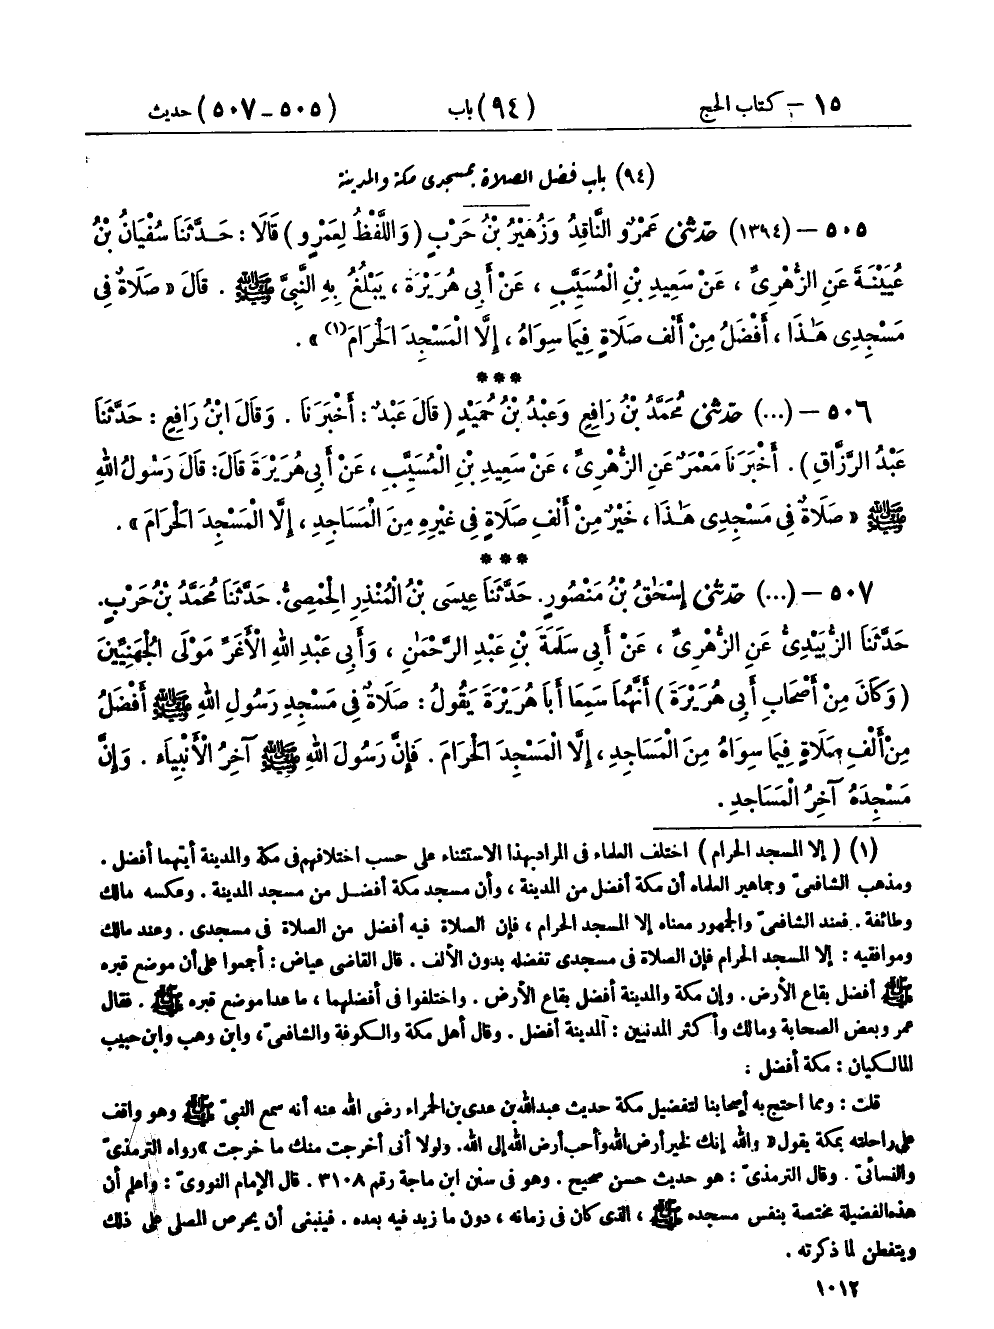 ١٥ – كتاب الحج (٩٤) باب (٥٠٥ – ٥٠٧) حديث
(٩٤) باب فضل الصلاة بمسجدى مكة والمدينة
٥٠٥ – (١٣٩٤) حَدَّثَنِى عَمْرٌو النَّاقِدُ وَزُهَيْرُ بْنُ حَرْبٍ (وَاللَّفْظُ لِعَمْرٍو) قَالَا : حَدَّثَنَا سُفْيَانُ بْنُ
عُيَيْنَةَ عَنِ الزُّهْرِىِّ ، عَنْ سَعِيدِ بْنِ الْمُسَيَّبِ ، عَنْ أَبِى هُرَيْرَةَ ، يَبْلُغُ بِهِ النَّبِىَّ ﷺ . قَالَ « صَلَاةٌ فِى
مَسْجِدِى هَٰذَا ، أَفْضَلُ مِنْ أَلْفِ صَلَاةٍ فِيمَا سِوَاهُ ، إِلَّا الْمَسْجِدَ الْحَرَامَ(١) » .
***
٥٠٦ – (...) حَدَّثَنِى مُحَمَّدُ بْنُ رَافِعٍ وَعَبْدُ بْنُ حُمَيْدٍ (قَالَ عَبْدٌ : أَخْبَرَنَا . وَقَالَ ابْنُ رَافِعٍ : حَدَّثَنَا
عَبْدُ الرَّزَّاقِ) . أَخْبَرَنَا مَعْمَرٌ عَنِ الزُّهْرِىِّ ، عَنْ سَعِيدِ بْنِ الْمُسَيَّبِ ، عَنْ أَبِى هُرَيْرَةَ قَالَ : قَالَ رَسُولُ اللهِ
ﷺ « صَلَاةٌ فِى مَسْجِدِى هَٰذَا ، خَيْرٌ مِنْ أَلْفِ صَلَاةٍ فِى غَيْرِهِ مِنَ الْمَسَاجِدِ ، إِلَّا الْمَسْجِدَ الْحَرَامَ » .
***
٥٠٧ – (...) حَدَّثَنِى إِسْحَٰقُ بْنُ مَنْصُورٍ . حَدَّثَنَا عِيسَى بْنُ الْمُنْذِرِ الْحِمْصِىُّ . حَدَّثَنَا مُحَمَّدُ بْنُ حَرْبٍ .
حَدَّثَنَا الزُّبَيْدِىُّ عَنِ الزُّهْرِىِّ ، عَنْ أَبِى سَلَمَةَ بْنِ عَبْدِ الرَّحْمَٰنِ ، وَأَبِى عَبْدِ اللهِ الْأَغَرِّ مَوْلَى الْجُهَنِيِّينَ
(وَكَانَ مِنْ أَصْحَابِ أَبِى هُرَيْرَةَ) أَنَّهُمَا سَمِعَا أَبَا هُرَيْرَةَ يَقُولُ : صَلَاةٌ فِى مَسْجِدِ رَسُولِ اللهِ ﷺ أَفْضَلُ
مِنْ أَلْفِ صَلَاةٍ فِيمَا سِوَاهُ مِنَ الْمَسَاجِدِ ، إِلَّا الْمَسْجِدَ الْحَرَامَ . فَإِنَّ رَسُولَ اللهِ ﷺ آخِرُ الْأَنْبِيَاءِ . وَإِنَّ
مَسْجِدَهُ آخِرُ الْمَسَاجِدِ .
(١) (إلا المسجد الحرام) اختلف العلماء فى المراد بهذا الاستثناء على حسب اختلافهم فى مكة والمدينة أيتهما أفضل .
ومذهب الشافعىّ وجماهير العلماء أن مكة أفضل من المدينة ، وأن مسجد مكة أفضل من مسجد المدينة . وعكسه مالك
وطائفة . فعند الشافعىّ والجمهور معناه إلا المسجد الحرام ، فإن الصلاة فيه أفضل من الصلاة فى مسجدى . وعند مالك
وموافقيه : إلا المسجد الحرام فإن الصلاة فى مسجدى تفضله بدون الألف . قال القاضى عياض : أجمعوا على أن موضع قبره
ﷺ أفضل بقاع الأرض . وإن مكة والمدينة أفضل بقاع الأرض . واختلفوا فى أفضلهما ، ما عدا موضع قبره ﷺ . فقال
عمر وبعض الصحابة ومالك وأكثر المدنيين : المدينة أفضل . وقال أهل مكة والكوفة والشافعىّ ، وابن وهب وابن حبيب
المالكيان : مكة أفضل :
قلت : ومما احتج به أصحابنا لتفضيل مكة حديث عبد الله بن عدى بن الحمراء رضى الله عنه أنه سمع النبىّ ﷺ وهو واقف
على راحلته بمكة يقول « والله إنك لخير أرض الله وأحب أرض الله إلى الله . ولولا أنى أخرجت منك ما خرجت » رواه الترمذىّ
والنسائىّ . وقال الترمذىّ : هو حديث حسن صحيح . وهو فى سنن ابن ماجة رقم ٣١٠٨ . قال الإمام النووىّ : واعلم أن
هذه الفضيلة مختصة بنفس مسجده ﷺ ، الذى كان فى زمانه ، دون ما زيد فيه بعده . فينبغى أن يحرص المصلى على ذلك
ويتفطن لما ذكرته .
١٠١٢